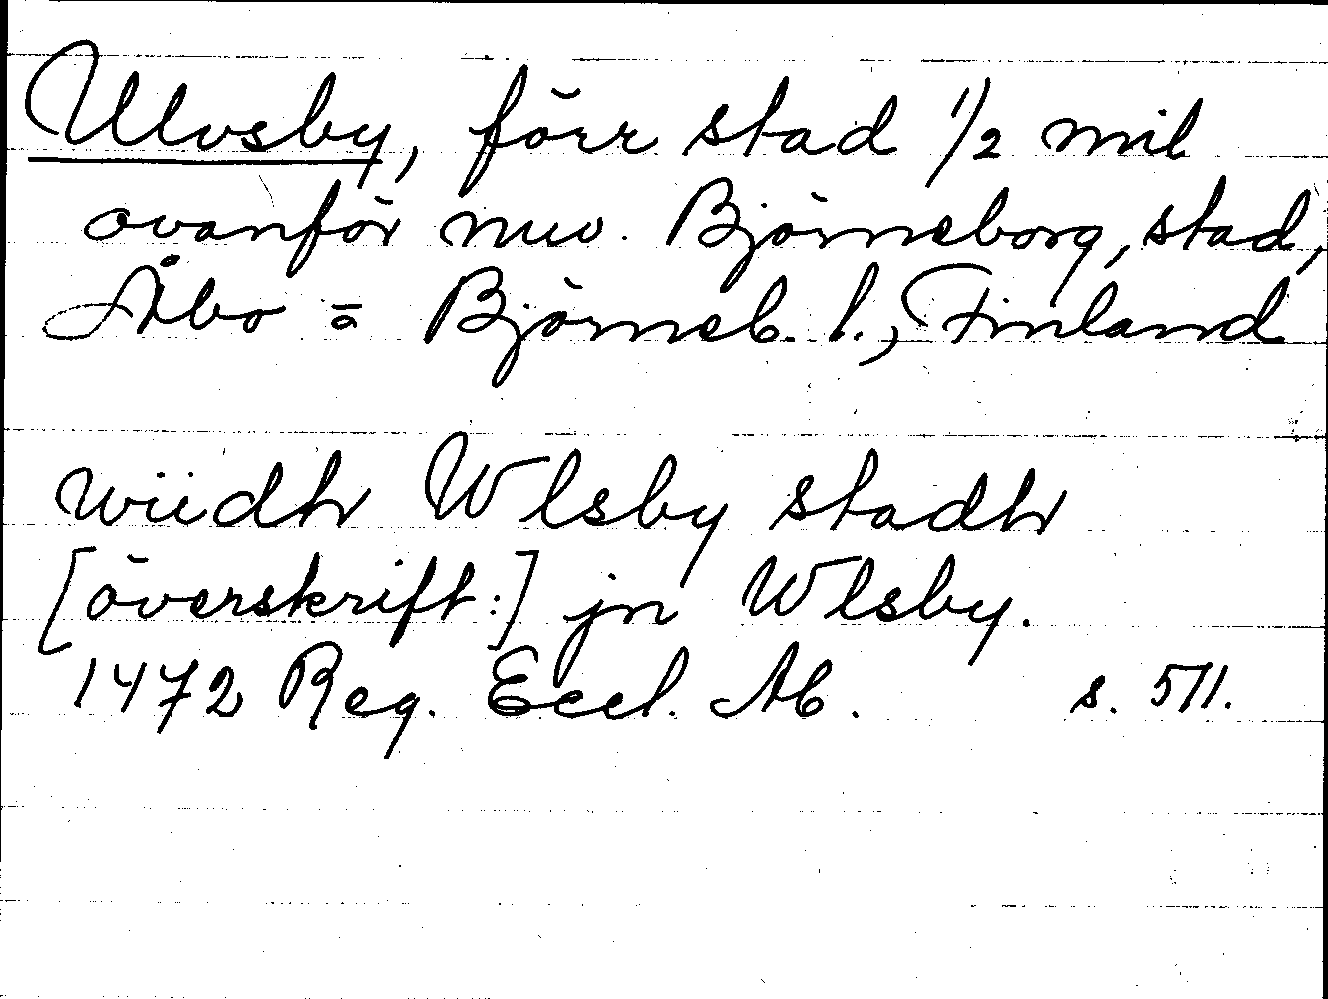 Ulvsby, förr stad 1/2 mil
ovanför nuv. Björneborg, stad,
Åbo = Björneb. l., Finland
wiidh Wlsby stadh
[överskrift:] jn Wlsby.
1472 Reg. Eccl. Ab. s. 571.